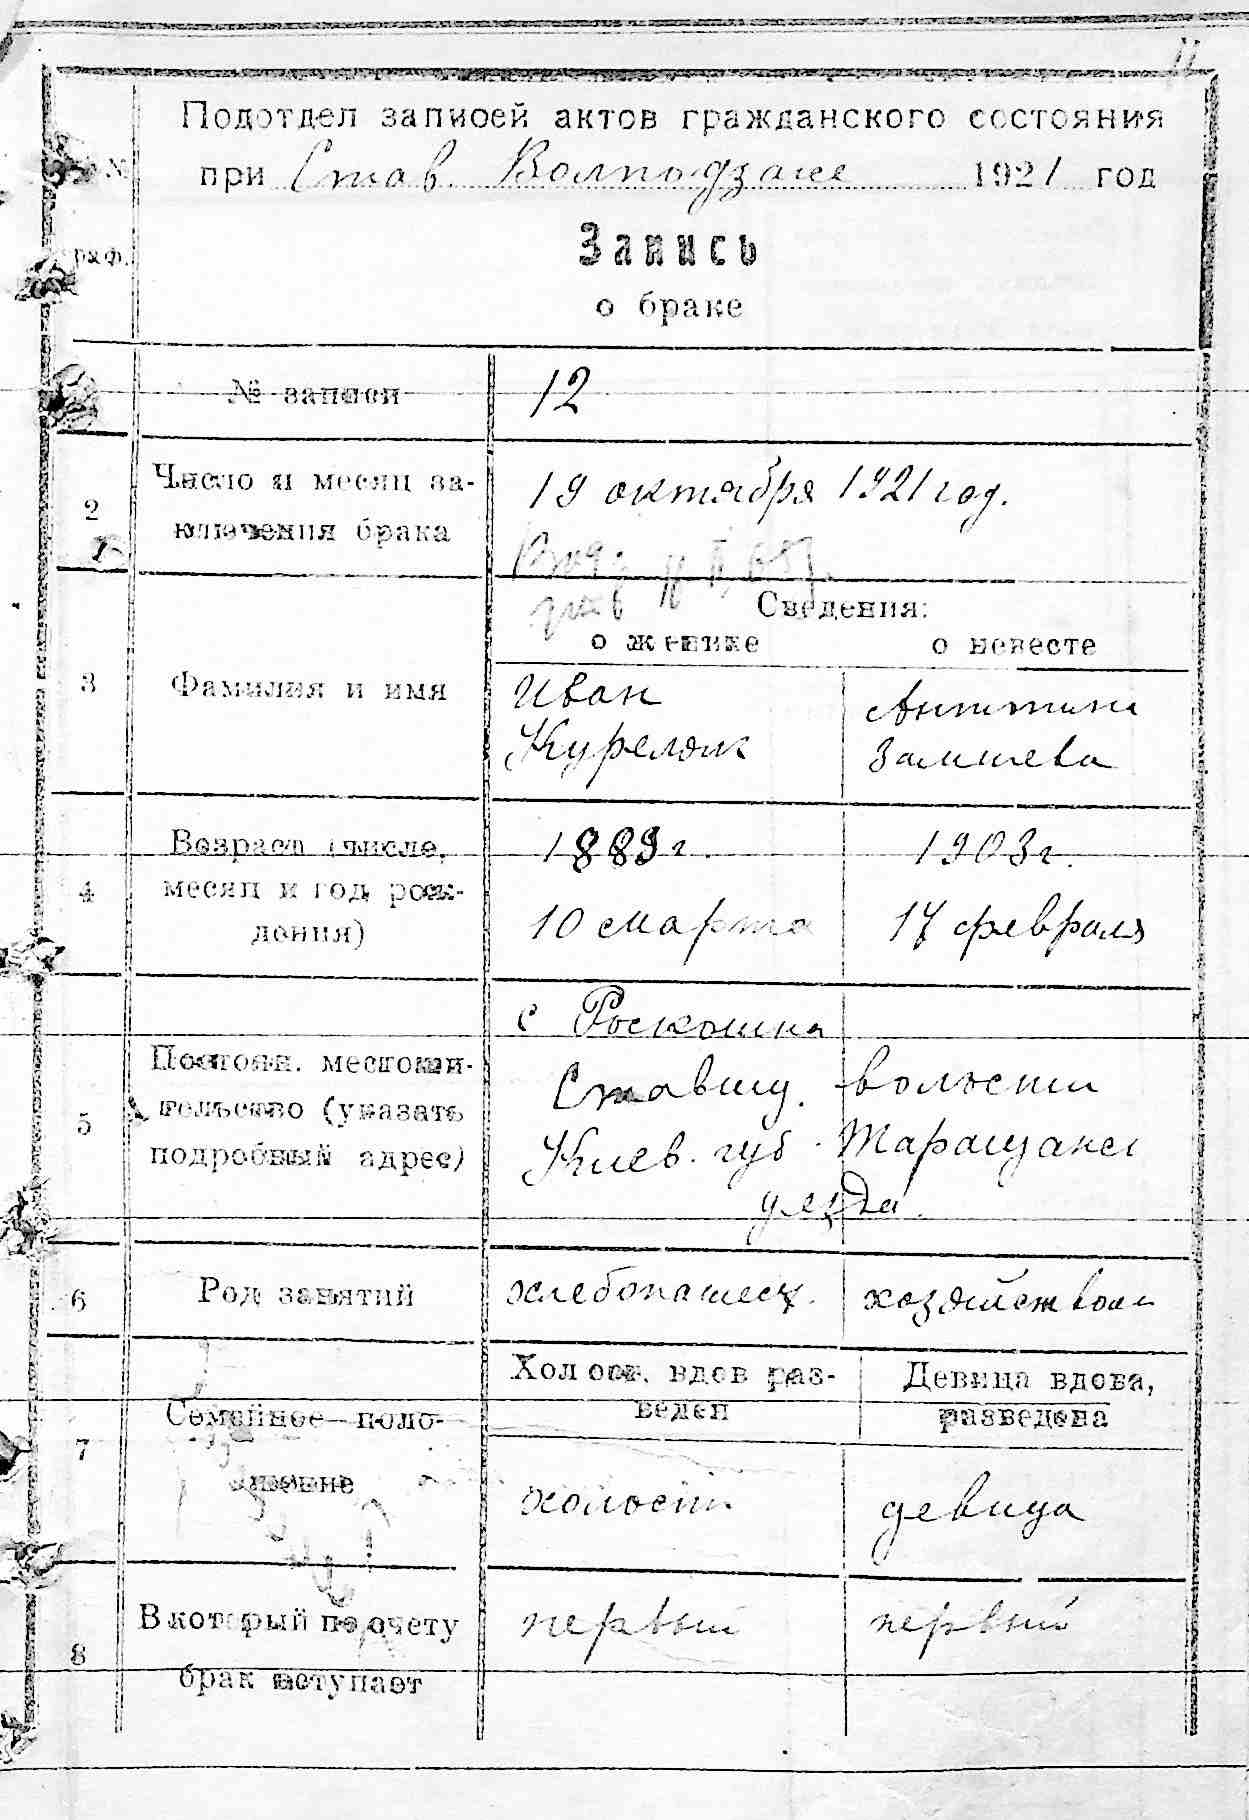 Подотдел записей актов гражданского состояния
при Став. 1921 год
№
граф.
Запись
о браке
№ записи 12
2 Число и месяц за-
ключения брака
19 октября 1921 год.
Сведения:
о женихе о невесте
3 Фамилия и имя
Иван
Курелюк
Антонина
4 Возраст (число,
месяц и год рож-
дения)
1889 г. 1903 г.
10 марта 17 февраля
5 Постоян. местожи-
тельство (указать
подробный адрес)
с Роскошна
Ставищ. волости
Киев. губ. Таращанс
уезда.
6 Род занятий хлебопашец. хозяйством
7 Семейное поло-
жение
Холост. вдов раз-
веден
Девица вдова,
разведена
холост девица
8 В который по счету
брак вступает
первый первый